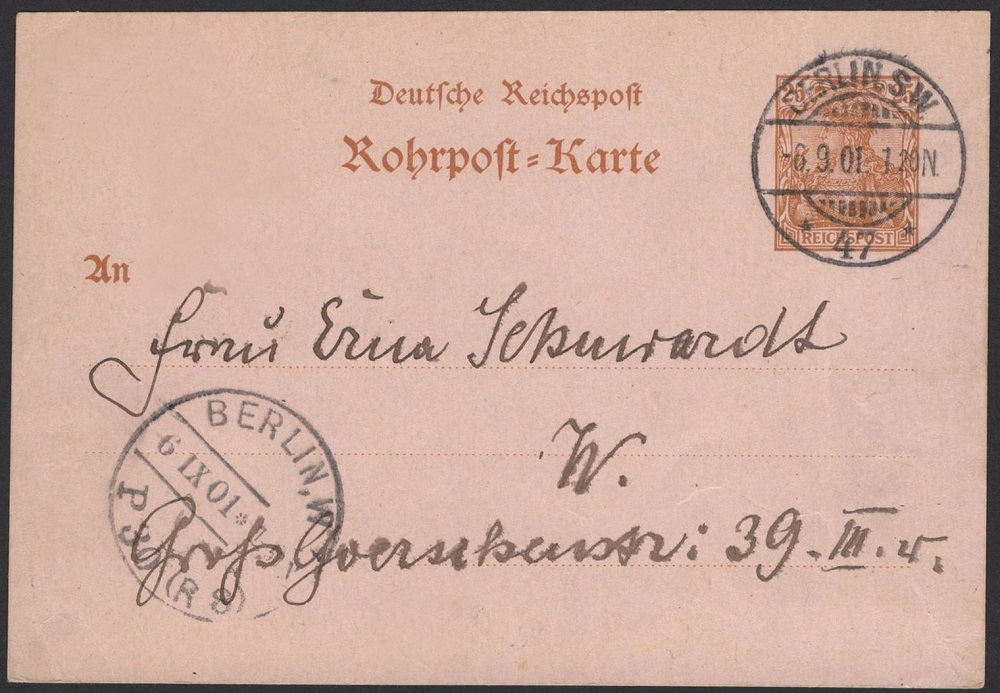 Deutsche Reichspost
Rohrpost=Karte
25
REICHSPOST
BERLIN S.W.
-6.9.01. 1.20N.
* 47 *
An
Frau Erna Schwardt
W.
Großgoerschenstr: 39. III. r.
BERLIN, W.
6 IX 01 *
P 30 (R 8)